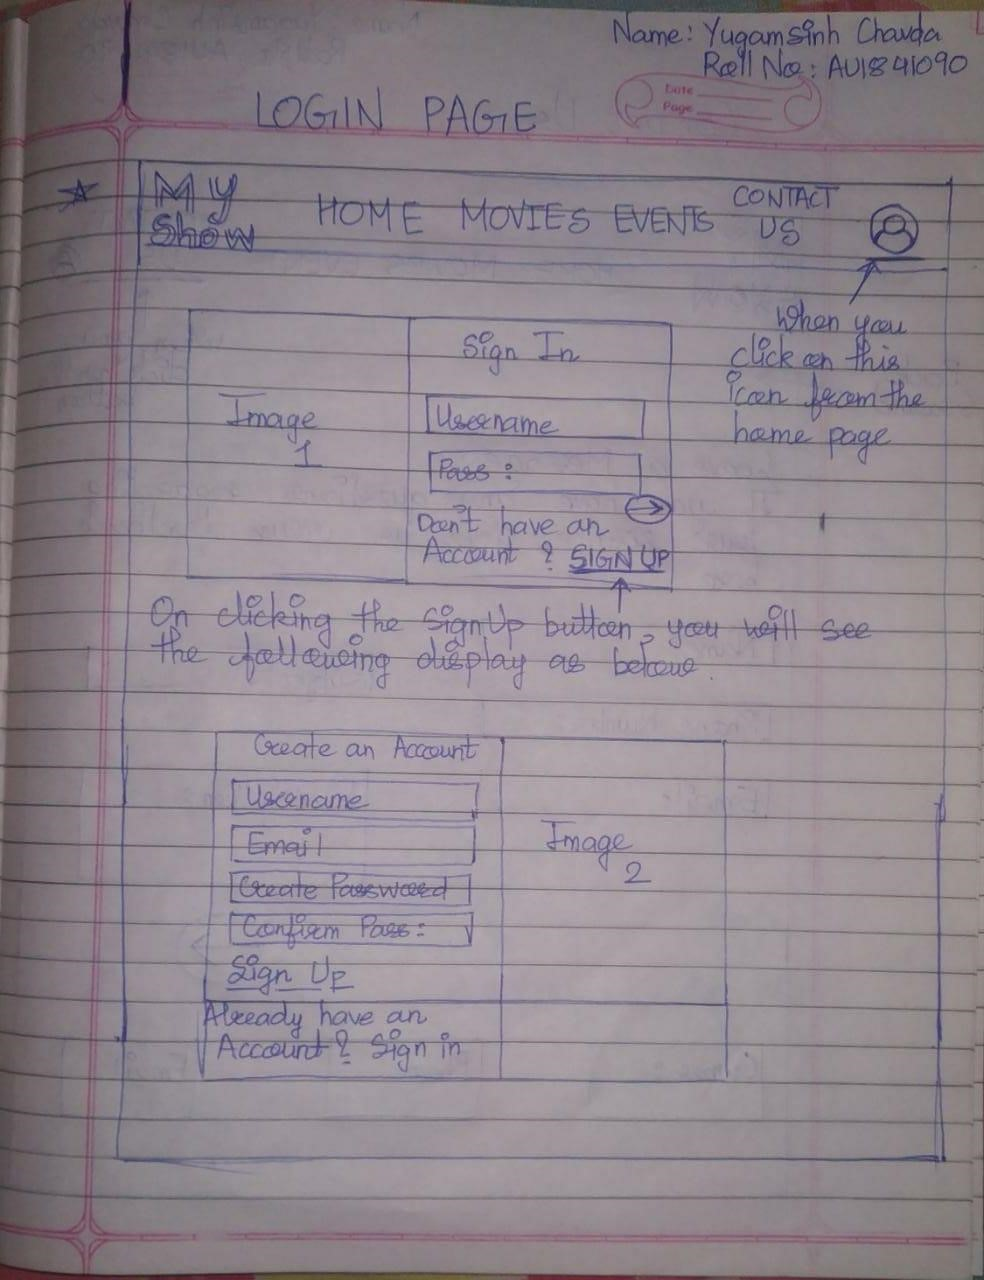 Name: Yugamsinh Chavda
Roll No: AU1841090
Date
Page
LOGIN PAGE
My Show HOME MOVIES EVENTS CONTACT US
When you
click on this
icon from the
home page
Sign In
Image
1
Username
Pass :
Don't have an
Account ? SIGN UP
On clicking the SignUp button, you will see
the following display as below.
Create an Account
Username
Email
Create Password
Confirm Pass :
Sign Up
Already have an
Account ? Sign in
Image
2